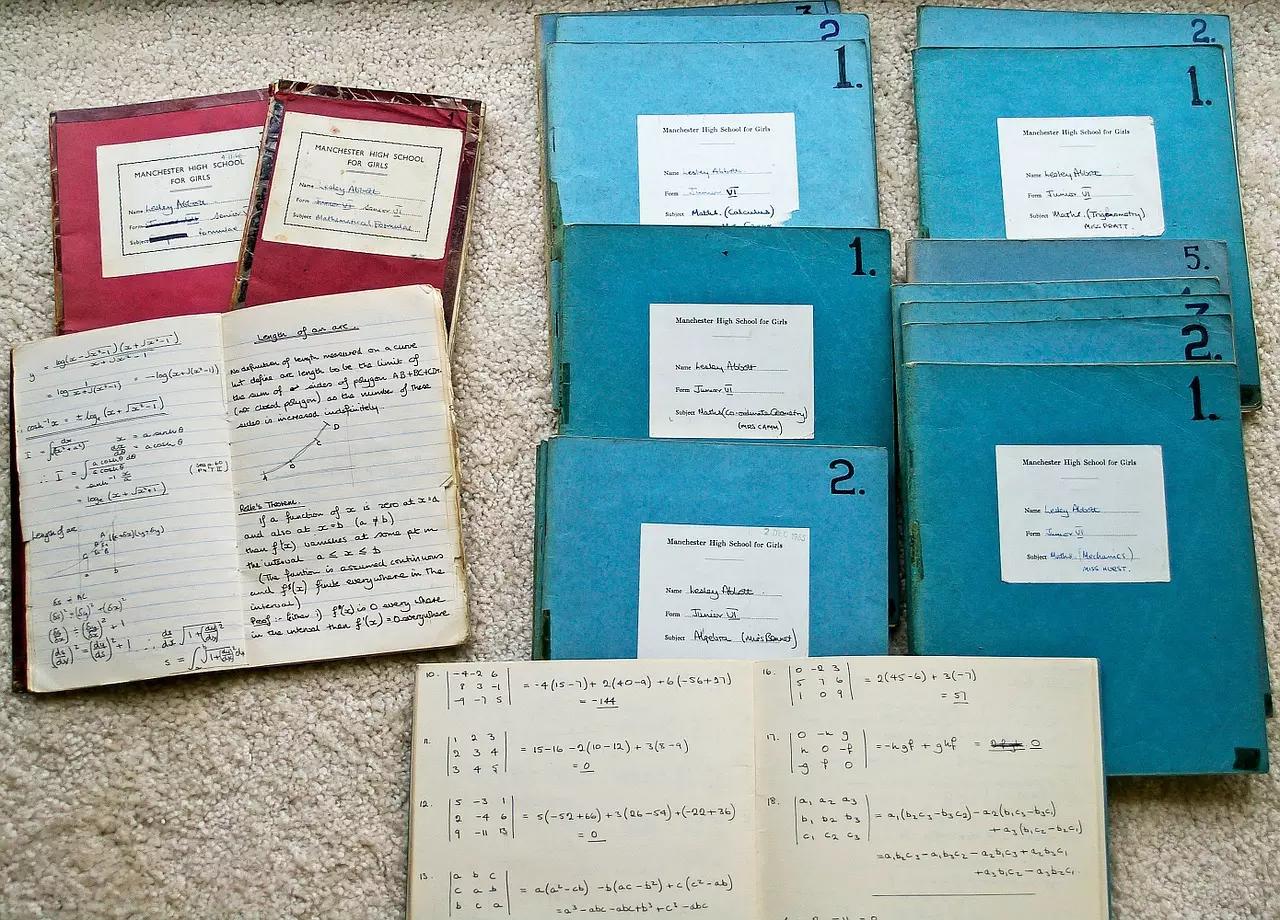 MANCHESTER HIGH SCHOOL
FOR GIRLS
Name Lesley Abbott
Form Junior VI Senior
Subject formulae
MANCHESTER HIGH SCHOOL
FOR GIRLS
Name Lesley Abbott
Form Junior VI Senior VI
Subject Mathematical Formulae
y = log(x-√x²-1)(x+√x²-1)
x+√x²-1
= log 1/x+√(x²-1) = -log(x+√(x²-1))
∴ cosh⁻¹x = ± logₑ(x+√x²-1)
I = ∫dx/√(x²+a²) x = a sinh θ
dx/dθ = a cosh θ
∴ I = ∫ a cosh θ dθ / a cosh θ
= sinh⁻¹ x/a
= logₑ(x+√x²+1)
Length of arc
δs ≠ AC
(δs)² = (δy)² + (δx)²
(δs/δx)² = (δy/δx)² + 1
(ds/dx)² = (dy/dx)² + 1 ∴ ds/dx = √1+(dy/dx)²
Length of an arc.
No definition of length measured on a curve
but define arc length to be the limit of
the sum of sides of polygon AB+BC+CD+
(not closed polygon) as the number of these
sides is increased indefinitely.
A B C D
Rolle's Theorem.
If a function of x is zero at x=a
and also at x=b (a ≠ b)
then f'(x) vanishes at some pt in
the interval a ≤ x ≤ b
(The function is assumed continuous
and finite everywhere in the
interval)
Proof :- Either i) f(x) is 0 every where
in the interval then f'(x)=0 everywhere
3
2
1.
Manchester High School for Girls
Name Lesley Abbott
Form Junior VI
Subject Maths. (Calculus)
2.
1.
Manchester High School for Girls
Name Lesley Abbott
Form Junior VI
Subject Maths. (Trigonometry)
MISS PRATT.
1.
Manchester High School for Girls
Name Lesley Abbott
Form Junior VI
Subject Maths (Co-ordinate Geometry)
(MRS CAMM)
5.
3
2.
1.
Manchester High School for Girls
Name Lesley Abbott
Form Junior VI
Subject Maths (Mechanics)
MISS HURST.
2.
2 DEC 1965
Manchester High School for Girls
Name Lesley Abbott
Form Junior VI
Subject Algebra
10. -4 -2 6
8 3 -1
-9 -7 5
= -4(15-7) + 2(40-9) + 6(-56+27)
= -144
11. 1 2 3
2 3 4
3 4 5
= 15-16 -2(10-12) + 3(8-9)
= 0
12. 5 -3 1
2 -4 6
9 -11 13
= 5(-52+66) + 3(26-54) + (-22+36)
= 0
13. a b c
c a b
b c a
= a(a²-cb) -b(ac-b²) + c(c²-ab)
= a³-abc-abc+b³+c³-abc
16. 0 -2 3
5 7 6
1 0 9
= 2(45-6) + 3(-7)
= 57
17. 0 -h g
h 0 -f
-g f 0
= -hgf + ghf = 0
18. a₁ a₂ a₃
b₁ b₂ b₃
c₁ c₂ c₃
= a₁(b₂c₃-b₃c₂) - a₂(b₁c₃-b₃c₁)
+ a₃(b₁c₂-b₂c₁)
= a₁b₂c₃-a₁b₃c₂-a₂b₁c₃+a₂b₃c₁
+a₃b₁c₂-a₃b₂c₁.